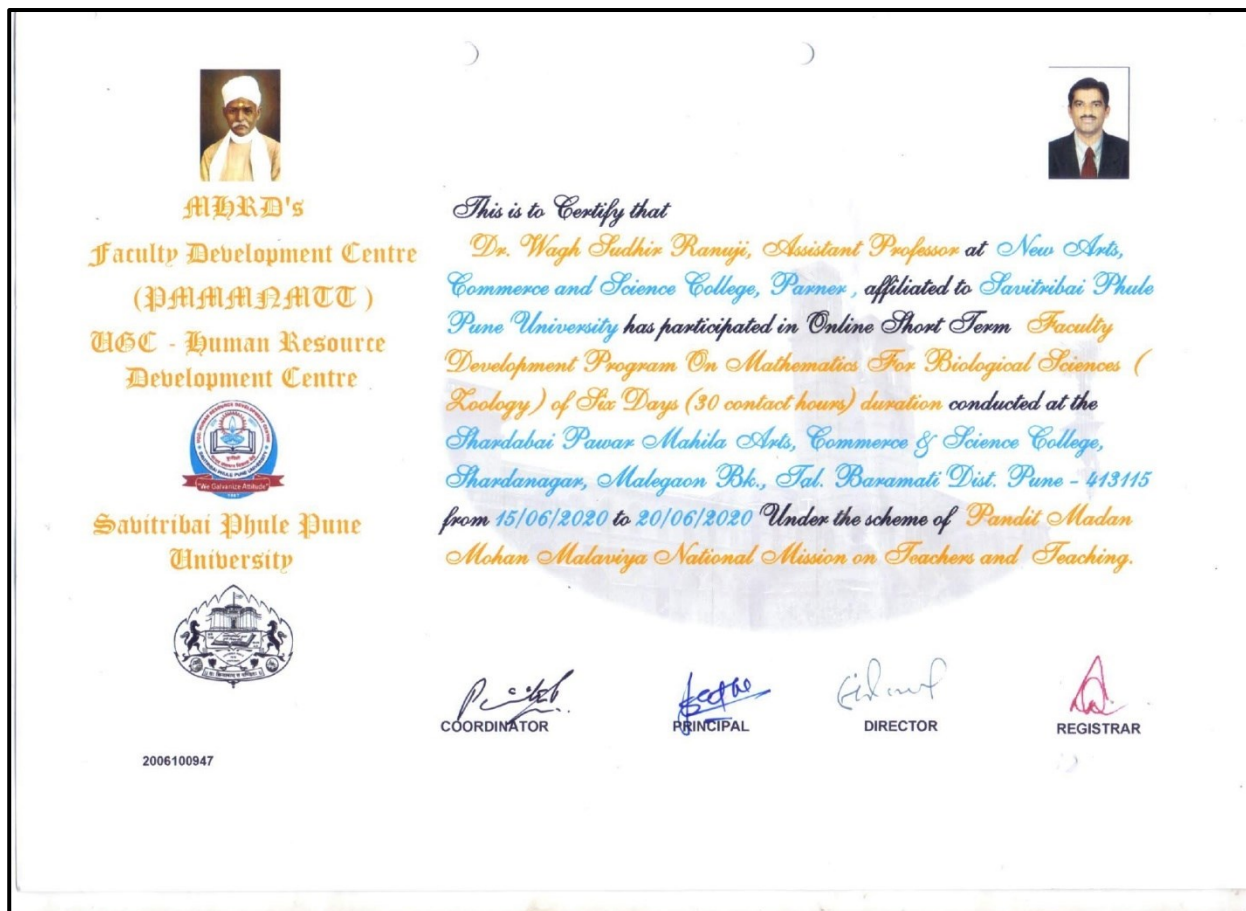 MHRD's
Faculty Development Centre
(PMMMNMTT )
UGC - Human Resource
Development Centre
"We Galvanize Attitude"
Savitribai Phule Pune
University
2006100947
This is to Certify that
Dr. Wagh Sudhir Ranuji, Assistant Professor at New Arts,
Commerce and Science College, Parner , affiliated to Savitribai Phule
Pune University has participated in Online Short Term Faculty
Development Program On Mathematics For Biological Sciences (
Zoology) of Six Days (30 contact hours) duration conducted at the
Shardabai Pawar Mahila Arts, Commerce & Science College,
Shardanagar, Malegaon Bk., Tal. Baramati Dist. Pune - 413115
from 15/06/2020 to 20/06/2020 Under the scheme of Pandit Madan
Mohan Malaviya National Mission on Teachers and Teaching.
COORDINATOR PRINCIPAL DIRECTOR REGISTRAR